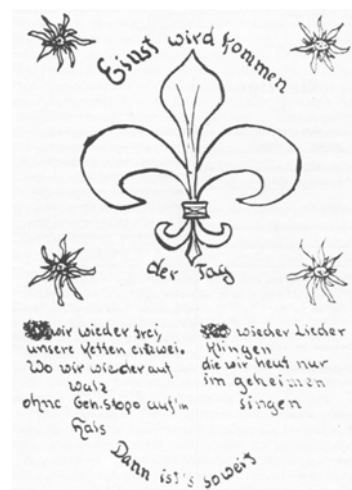 Einst wird kommen
der Tag
wir wieder frei,
unsere Ketten entzwei.
Wo wir wieder auf
Walz
ohne Geh.stapo auf'm
Hals
wieder Lieder
Klingen
die wir heut nur
im geheimen
singen
Dann ist's soweit